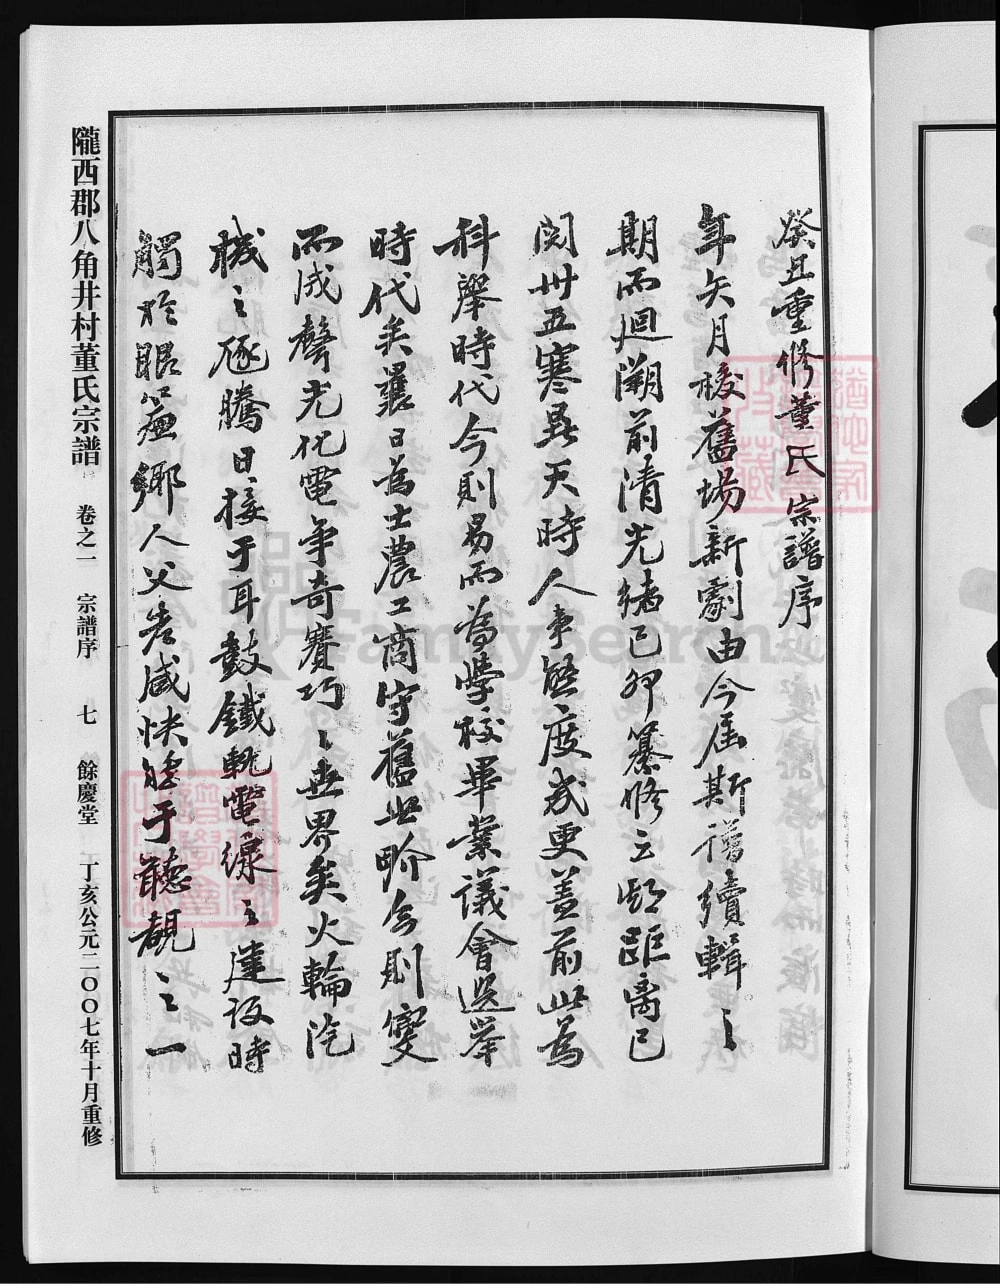 癸丑重修董氏宗譜序
年矢月梭舊場新劇由今屆斯譜續輯之
期而迴溯前清光緒己卯纂修之期距离已
閱卅五寒暑天時人事態度幾更蓋前此為
科舉時代今則易而為學校畢業議會選举
時代矣曩日為士農工商守舊世界今則變
而成聲光化電争奇賽巧之世界矣火輪汽
機之砯騰日接于耳鼓鐵軌電線之建設時
觸於眼簾鄉人父老咸快於于聽覩之一
隴西郡八角井村董氏宗譜 卷之一 宗譜序 七 餘慶堂 丁亥公元二〇〇七年十月重修
FamilySearch